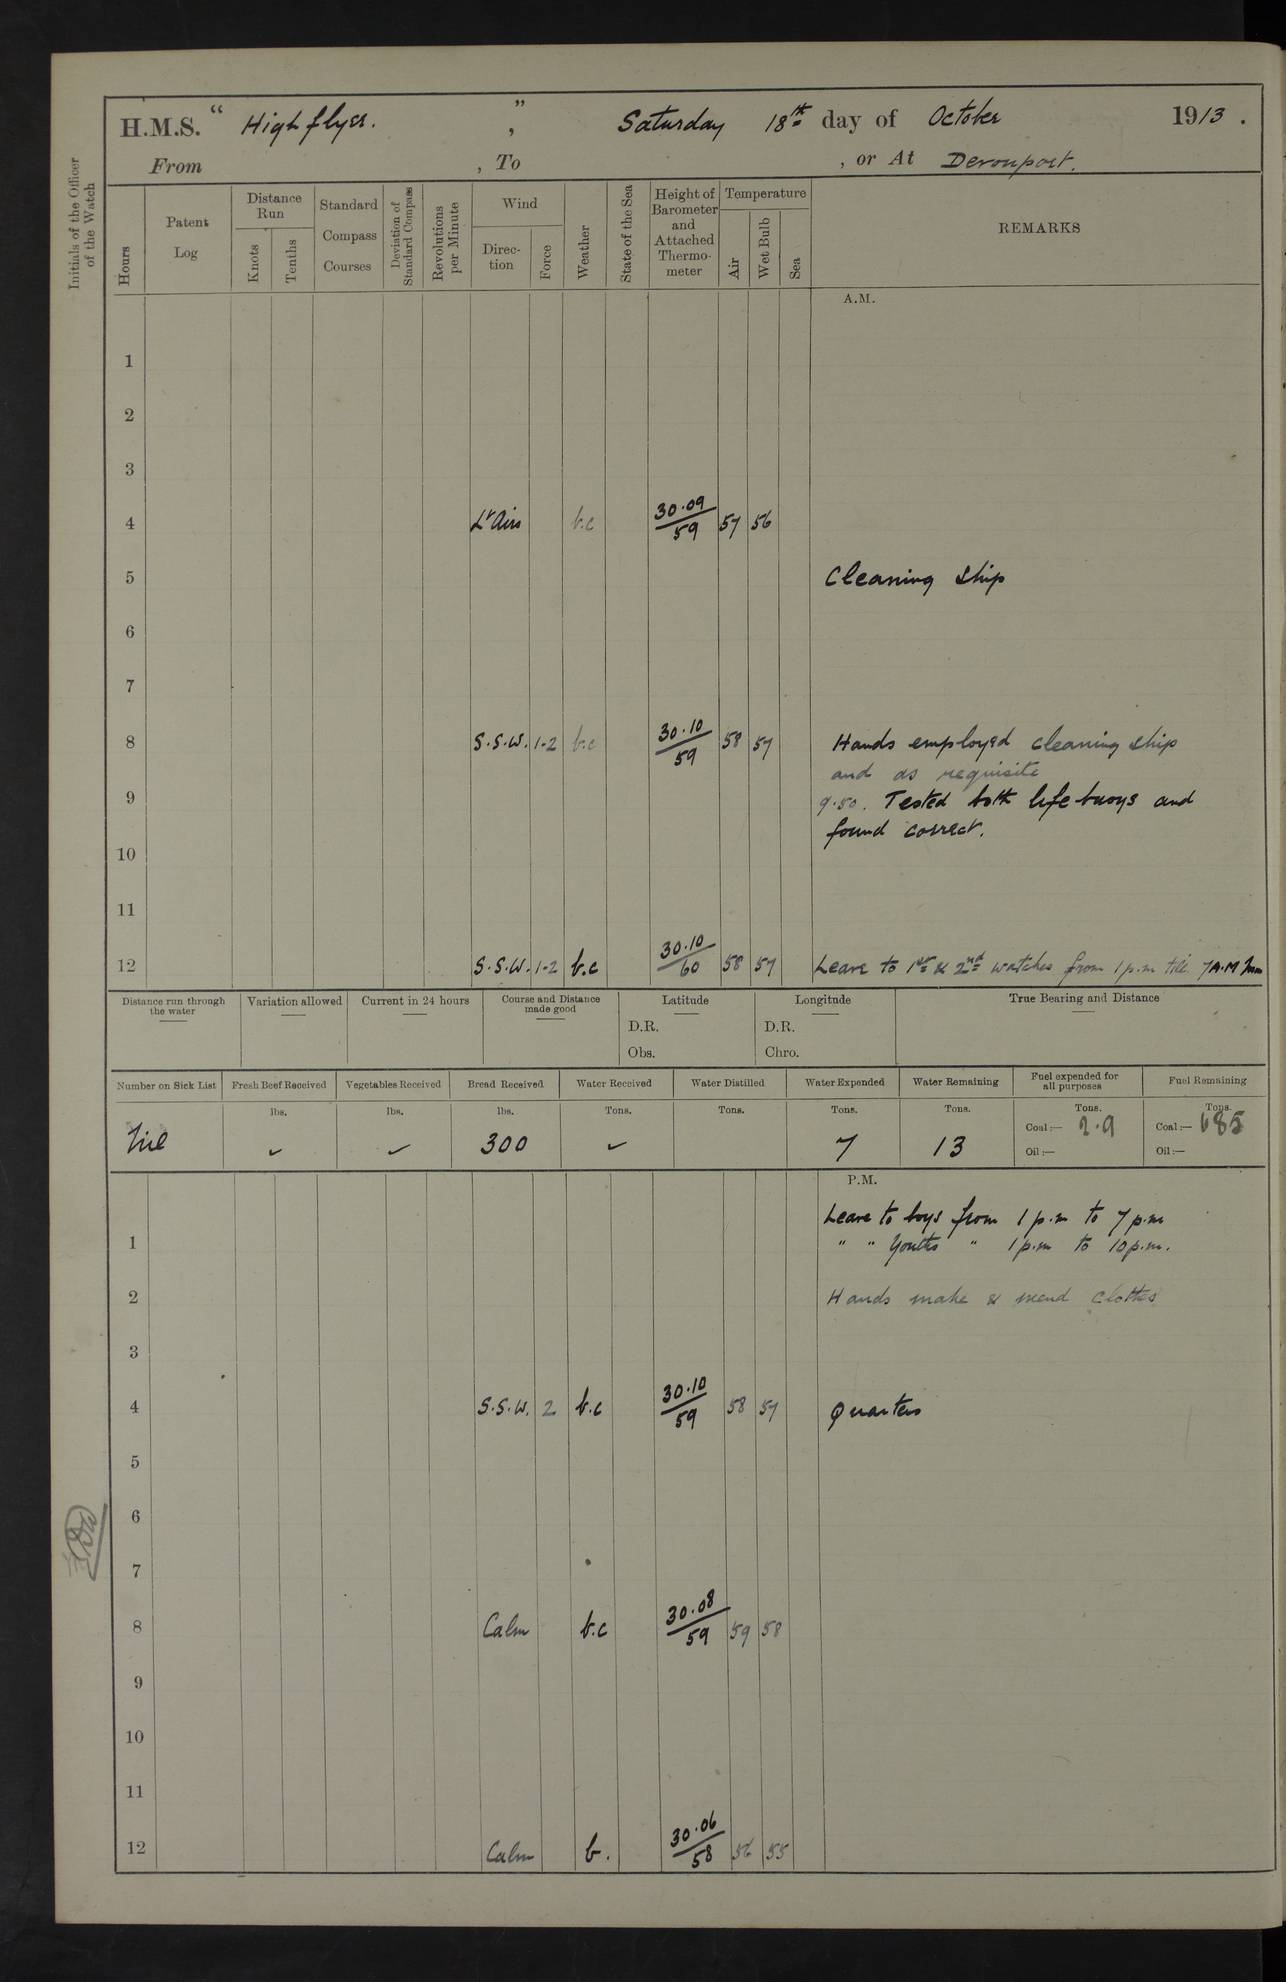 H.M.S. " Highflyer. ", Saturday 18th day of October 1913.
From , To , or At Devonport.
Initials of the Officer of the Watch
Hours
Patent Log
Distance Run
Knots
Tenths
Standard Compass Courses
Deviation of Standard Compass
Revolutions per Minute
Wind
Direction
Force
Weather
State of the Sea
Height of Barometer and Attached Thermometer
Temperature
Air
Wet Bulb
Sea
REMARKS
A.M.
1
2
3
4 Lt Airs b.c 30.09/59 57 56
5 Cleaning ship
6
7
8 S.S.W. 1-2 b.c 30.10/59 58 57 Hands employed cleaning ship
and as requisite
9 9.50. Tested both life buoys and
found correct.
10
11
12 S.S.W. 1-2 b.c 30.10/60 58 57 Leave to 1st & 2nd watches from 1 p.m till 7 A.M
Distance run through the water
Variation allowed
Current in 24 hours
Course and Distance made good
Latitude
D.R.
Obs.
Longitude
D.R.
Chro.
True Bearing and Distance
Number on Sick List Fresh Beef Received Vegetables Received Bread Received Water Received Water Distilled Water Expended Water Remaining Fuel expended for all purposes Fuel Remaining
lbs. lbs. lbs. Tons. Tons. Tons. Tons. Tons. Tons.
Coal:— 2.9 Coal:— 685
Nil ✓ ✓ 300 ✓ 7 13 Oil:— Oil:—
P.M.
Leave to boys from 1 p.m to 7 p.m
1 " " Youths " 1 p.m to 10 p.m.
2 Hands make & mend clothes
3
4 S.S.W. 2 b.c 30.10/59 58 57 Quarters
5
6
7
8 Calm b.c 30.08/59 59 58
9
10
11
12 Calm b. 30.06/58 56 55